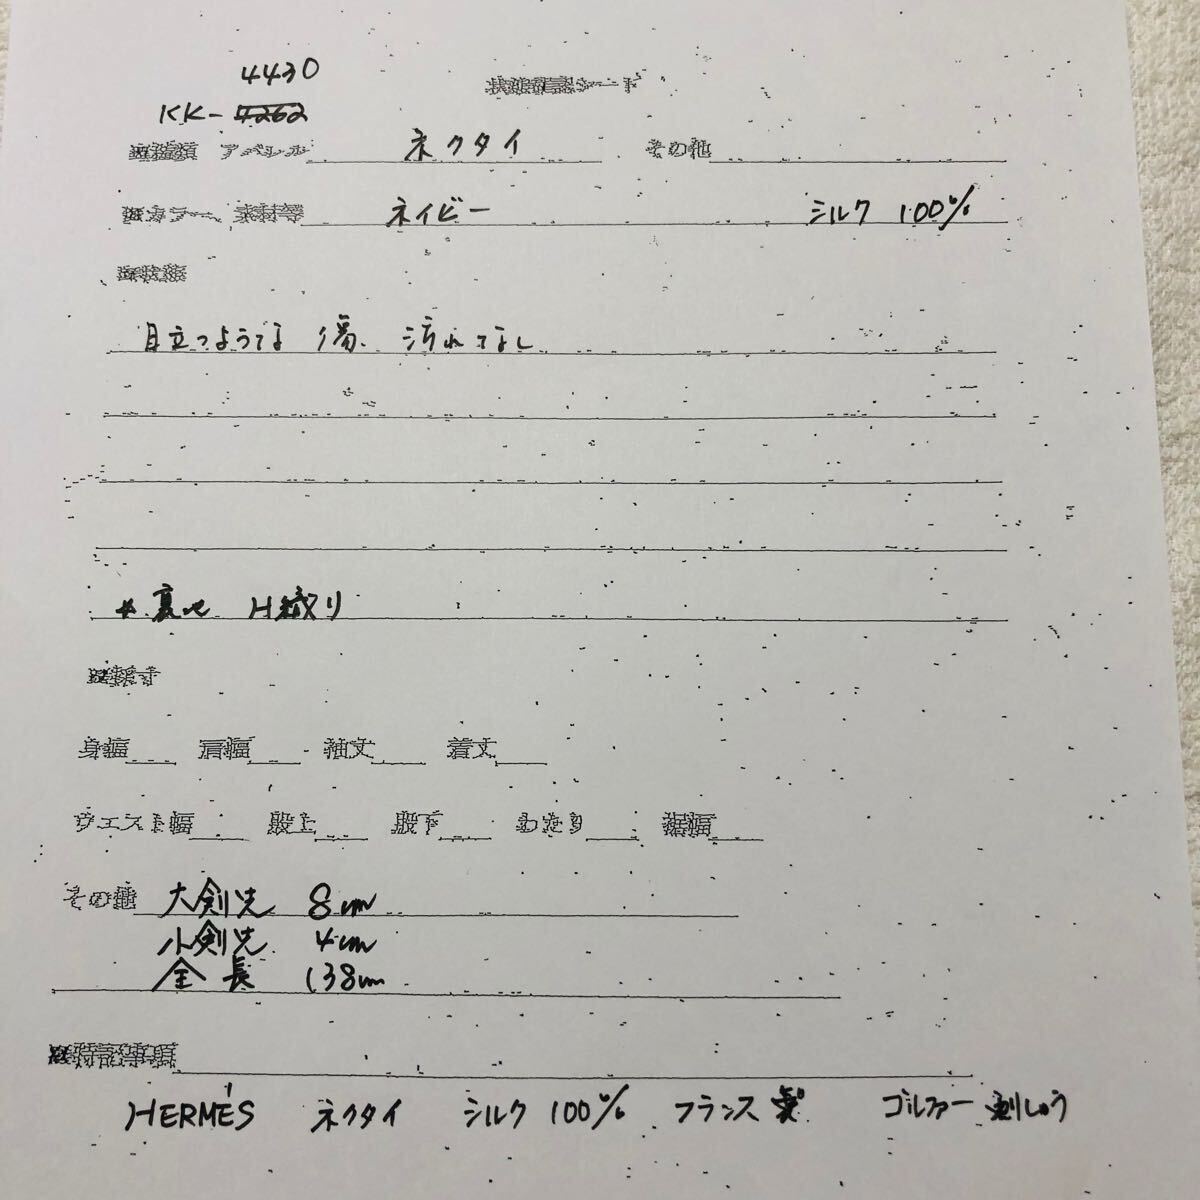 4430
KK-4262
状態確認シート
アパレル ネクタイ その他
カラー、素材等 ネイビー シルク 100%
目立つような 傷、汚れなし
* 裏地 H織り
採寸
身幅 肩幅 袖丈 着丈
ウエスト幅 股上 股下 わたり 裾幅
その他 大剣先 8cm
小剣先 4cm
全長 138cm
特記事項
HERMÉS ネクタイ シルク 100% フランス製 ゴルファー刺しゅう